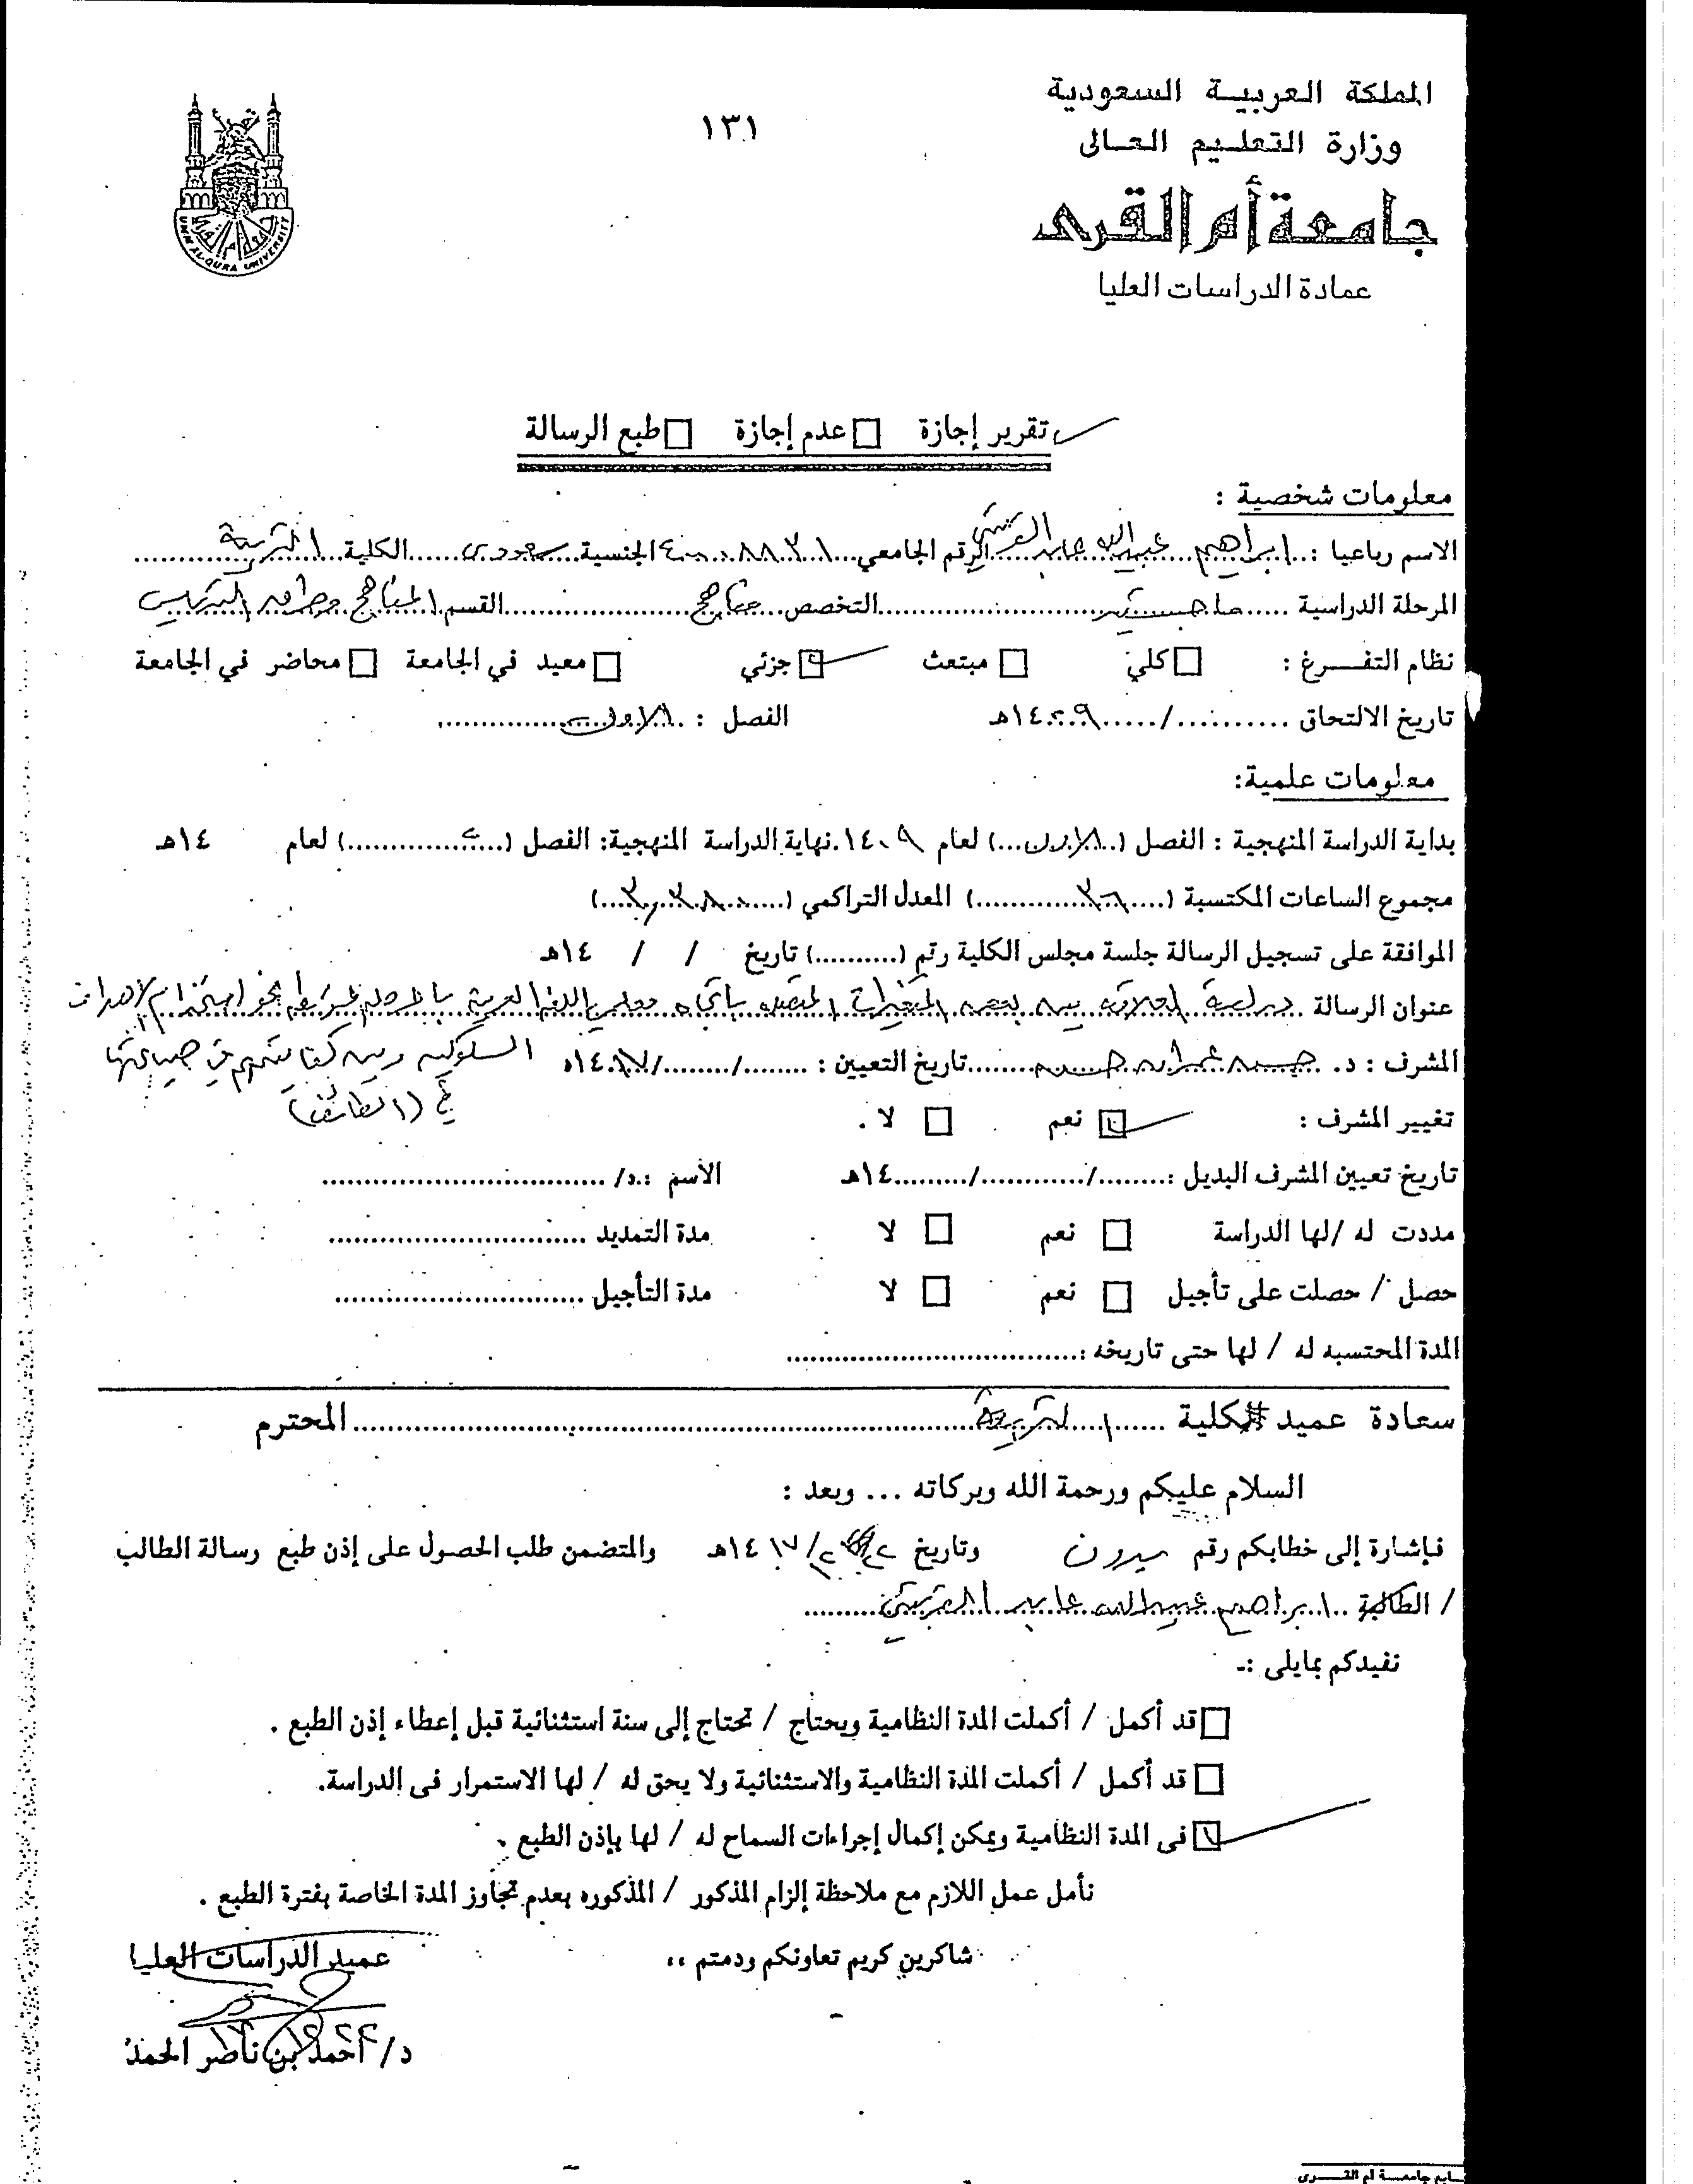 المملكة العربية السعودية
وزارة التعليم العالى
جامعة أم القرى
عمادة الدراسات العليا
١٣١
UMM AL-QURA UNIVERSITY
تقرير إجازة □ عدم إجازة □ طبع الرسالة
معلومات شخصية :
الاسم رباعيا : ابراهيم عبدالله عابد القرشي الرقم الجامعي الجنسية سعودي الكلية التربية
المرحلة الدراسية ماجستير التخصص مناهج القسم المناهج وطرق التدريس
نظام التفرغ : □ كلي □ مبتعث □ جزئي □ معيد في الجامعة □ محاضر في الجامعة
تاريخ الالتحاق ....../...... ١٤٠٩هـ الفصل : الاول
معلومات علمية:
بداية الدراسة المنهجية : الفصل (الاول) لعام ١٤٠٩ نهاية الدراسة المنهجية: الفصل (......) لعام ١٤هـ
مجموع الساعات المكتسبة (٣٦) المعدل التراكمي (......)
الموافقة على تسجيل الرسالة جلسة مجلس الكلية رقم (..........) تاريخ / / ١٤هـ
عنوان الرسالة دراسة العلاقة بين بعض المتغيرات المتصلة باتجاه معلمي اللغة العربية بالمرحلة نحو استخدام الأهداف
السلوكية وبين كفايتهم في صياغتها
في (الطائف)
المشرف : د. تاريخ التعيين : ....../....../١٤١٧هـ
تغيير المشرف : □ نعم □ لا .
تاريخ تعيين المشرف البديل :......../............/.........١٤هـ الأسم : د/ ..............................
مددت له /لها الدراسة □ نعم □ لا مدة التمديد ..............................
حصل / حصلت على تأجيل □ نعم □ لا مدة التأجيل ..............................
المدة المحتسبه له / لها حتى تاريخه :..................................
سعادة عميد كلية التربية المحترم
السلام عليكم ورحمة الله وبركاته ... وبعد :
فإشارة إلى خطابكم رقم بدون وتاريخ ١٤١٧هـ والمتضمن طلب الحصول على إذن طبع رسالة الطالب
/ الطالبة ابراهيم عبدالله عابد القرشي
نفيدكم بمايلى :ـ
□ قد أكمل / أكملت المدة النظامية ويحتاج / تحتاج إلى سنة استثنائية قبل إعطاء إذن الطبع .
□ قد أكمل / أكملت المدة النظامية والاستثنائية ولا يحق له / لها الاستمرار فى الدراسة.
□ فى المدة النظامية ويمكن إكمال إجراءات السماح له / لها بإذن الطبع .
نأمل عمل اللازم مع ملاحظة إلزام المذكور / المذكوره بعدم تجاوز المدة الخاصة بفترة الطبع .
شاكرين كريم تعاونكم ودمتم ،،
عميد الدراسات العليا
د/ أحمد بن ناصر الحمد
جامعة أم القرى